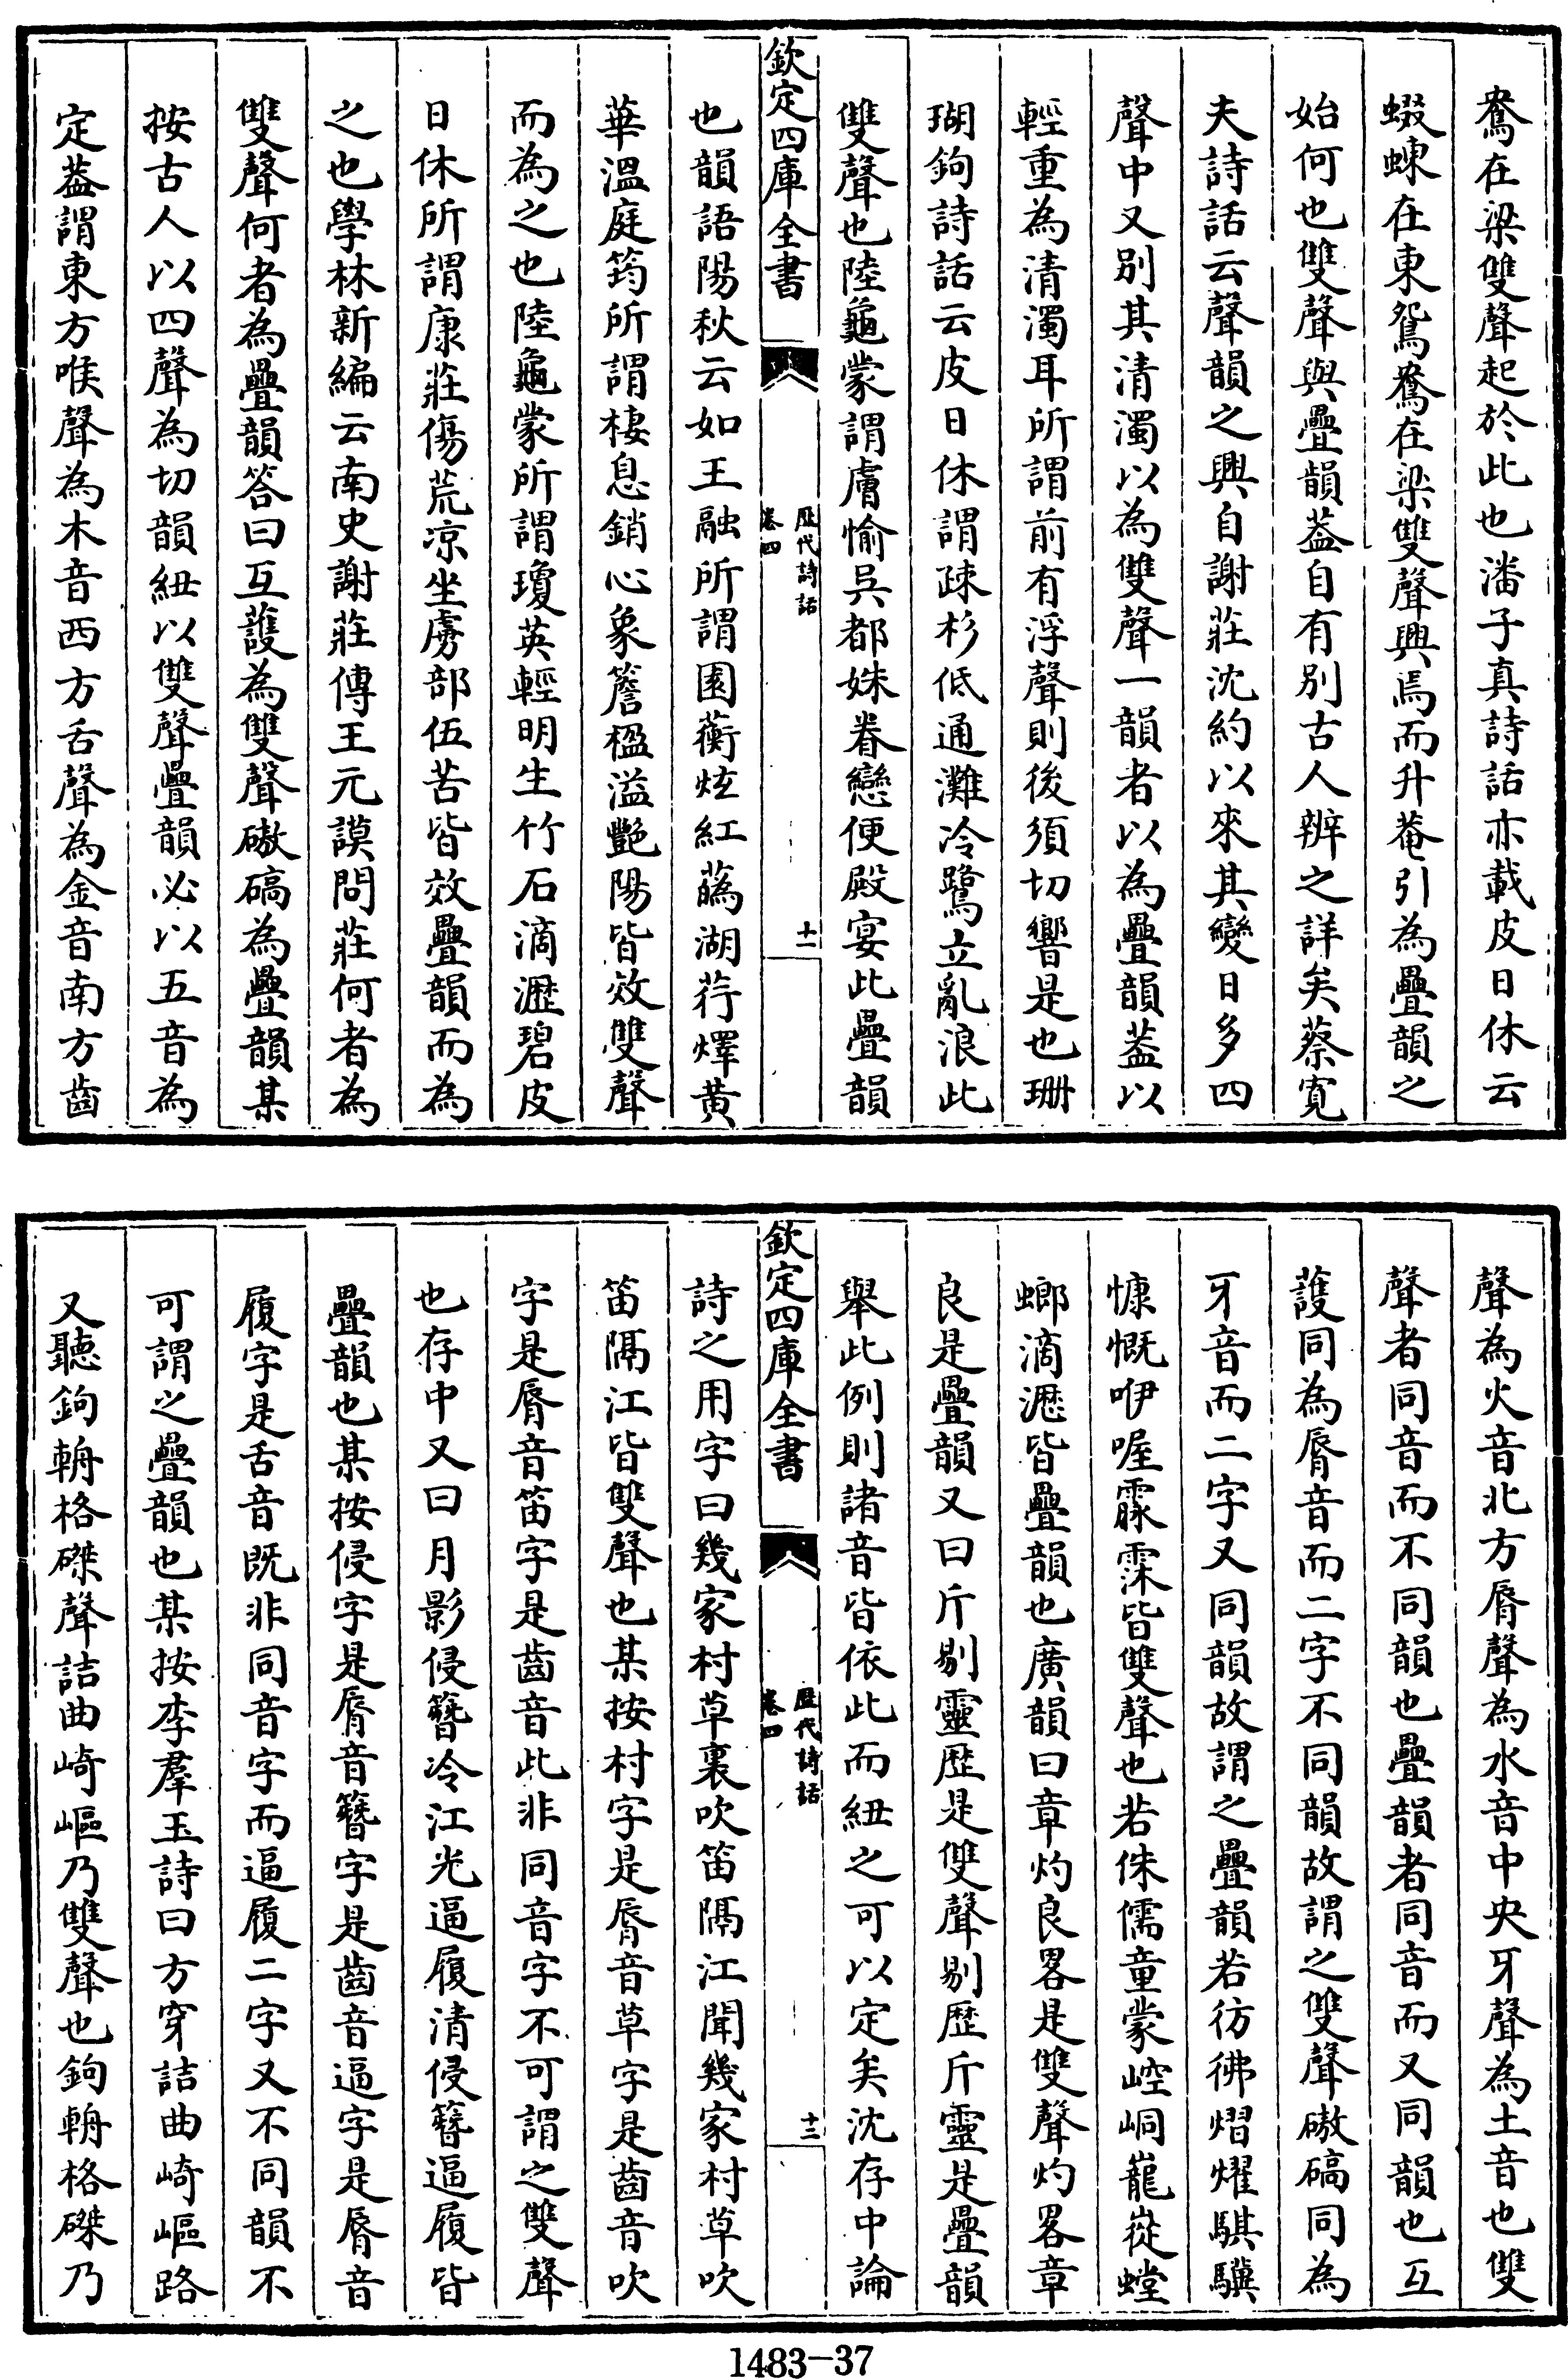 鴦在梁雙聲起於此也潘子真詩話亦載皮日休云
蝃蝀在東鴛鴦在梁雙聲興焉而升菴引為疊韻之
始何也雙聲與疊韻葢自有別古人辨之詳矣蔡寛
夫詩話云聲韻之興自謝莊沈約以來其變日多四
聲中又別其清濁以為雙聲一韻者以為疊韻葢以
輕重為清濁耳所謂前有浮聲則後須切響是也珊
瑚鉤詩話云皮日休謂疎杉低通灘冷鷺立亂浪此
雙聲也陸龜蒙謂膚愉吳都姝眷戀便殿宴此疊韻
欽定四庫全書
歴代詩話
卷四
十二
也韻語陽秋云如王融所謂園蘅炫紅蘤湖荇燡黄
華溫庭筠所謂棲息銷心象簷楹溢艷陽皆效雙聲
而為之也陸龜蒙所謂瓊英輕明生竹石滴瀝碧皮
日休所謂康莊傷荒凉坐虜部伍苦皆效疊韻而為
之也學林新編云南史謝莊傳王元謨問莊何者為
雙聲何者為疊韻答曰互䕶為雙聲磝碻為疊韻某
按古人以四聲為切韻紐以雙聲疊韻必以五音為
定葢謂東方喉聲為木音西方舌聲為金音南方齒
聲為火音北方脣聲為水音中央牙聲為土音也雙
聲者同音而不同韻也疊韻者同音而又同韻也互
䕶同為脣音而二字不同韻故謂之雙聲磝碻同為
牙音而二字又同韻故謂之疊韻若彷彿熠燿騏驥
慷慨咿喔霢霂皆雙聲也若侏儒童蒙崆峒巃嵸螳
螂滴瀝皆疊韻也廣韻曰章灼良畧是雙聲灼畧章
良是疊韻又曰斤剔靈歴是雙聲剔歴斤靈是疊韻
舉此例則諸音皆依此而紐之可以定矣沈存中論
欽定四庫全書
歴代詩話
卷四
十三
詩之用字曰幾家村草裏吹笛隔江聞幾家村草吹
笛隔江皆雙聲也某按村字是脣音草字是齒音吹
字是脣音笛字是齒音此非同音字不可謂之雙聲
也存中又曰月影侵簪冷江光逼履清侵簪逼履皆
疊韻也某按侵字是脣音簪字是齒音逼字是脣音
履字是舌音既非同音字而逼履二字又不同韻不
可謂之疊韻也某按李羣玉詩曰方穿詰曲崎嶇路
又聽鉤輈格磔聲詰曲崎嶇乃雙聲也鉤輈格磔乃
1483-37